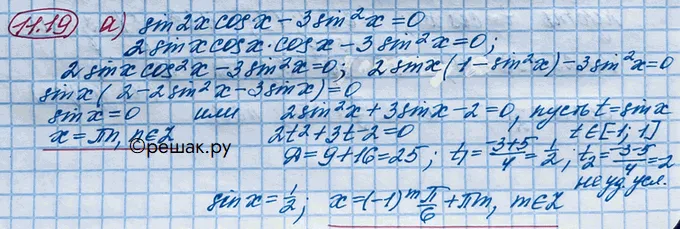 11.19 а) sin2x cosx - 3sin²x = 0
2sinx cosx·cosx - 3sin²x = 0;
2sinx cos²x - 3sin²x = 0; 2sinx(1 - sin²x) - 3sin²x = 0
sinx(2 - 2sin²x - 3sinx) = 0
sinx = 0 или 2sin²x + 3sinx - 2 = 0, пусть t = sinx
x = πn, n∈Z 2t² + 3t - 2 = 0 t∈[-1; 1]
©решак.ру
Д = 9 + 16 = 25; t₁ = (-3+5)/4 = 1/2; t₂ = (-3-5)/4 = -2
не уд. усл.
sinx = 1/2; x = (-1)ᵐ π/6 + πm, m∈Z